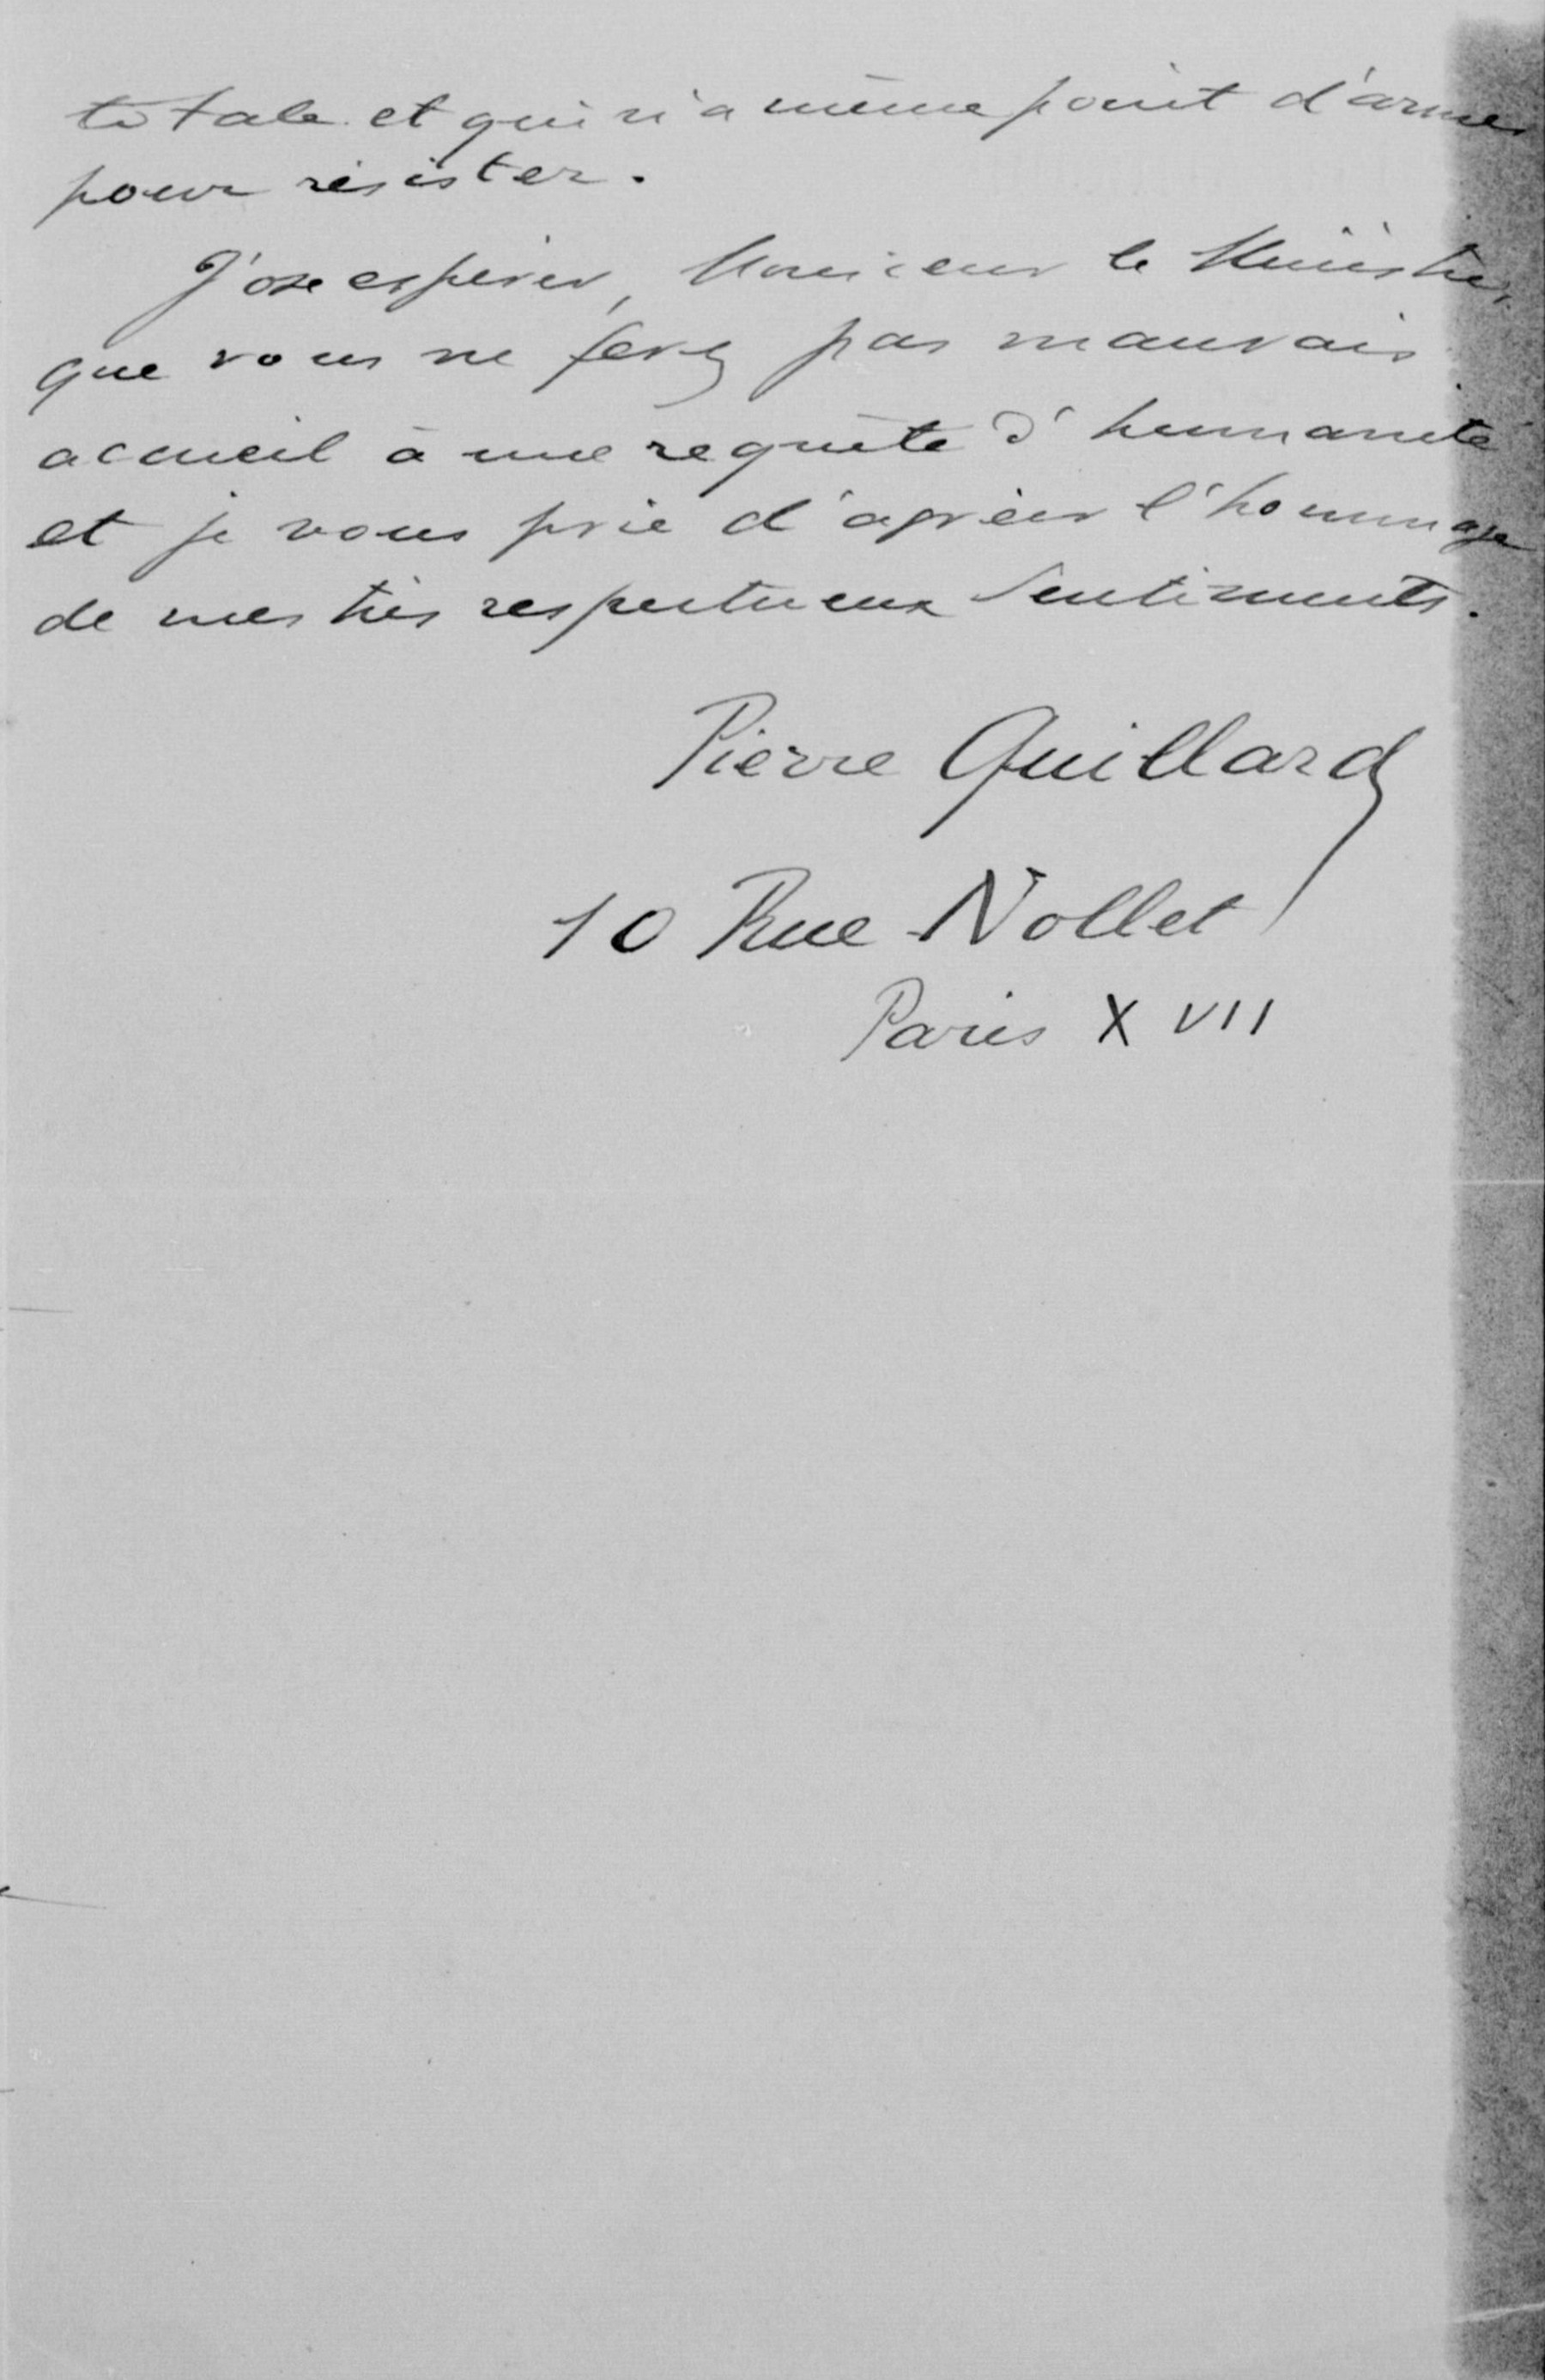 totale et qui n'a même point d'armes
pour résister.
J'ose espérer, Monsieur le Ministre,
que vous ne ferez pas mauvais
accueil à une requête d'humanité
et je vous prie d'agréer l'hommage
de mes très respectueux sentiments.
Pierre Quillard
10 Rue Nollet
Paris XVII